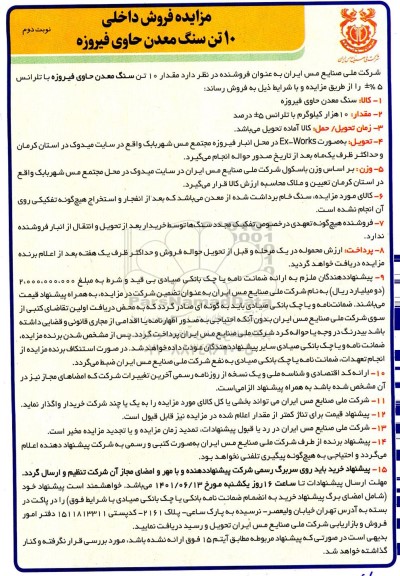 مزایده فروش داخلی
۱۰ تن سنگ معدن حاوی فیروزه
نوبت دوم
شرکت ملی صنایع مس ایران به عنوان فروشنده در نظر دارد مقدار ۱۰ تن سنگ معدن حاوی فیروزه با تلرانس
۵ %± را از طریق مزایده و با شرایط ذیل به فروش رساند:
۱- کالا: سنگ معدن حاوی فیروزه
۲- مقدار: ۱۰ هزار کیلوگرم با تلرانس ۵± درصد
۳- زمان تحویل/ حمل: کالا آماده تحویل می‌باشد.
۴- تحویل: به‌صورت Ex-Works در محل انبار فیروزه مجتمع مس شهربابک واقع در سایت میدوک در استان کرمان
و حداکثر ظرف یک‌ماه بعد از تاریخ صدور حواله انجام می‌گیرد.
۵- وزن: بر اساس وزن باسکول شرکت ملی صنایع مس ایران در سایت میدوک در محل مجتمع مس شهربابک واقع
در استان کرمان تعیین و ملاک محاسبه ارزش کالا قرار می‌گیرد.
۶- کالای مورد مزایده، سنگ خام برداشت شده از معدن می‌باشد که بعد از انفجار و استخراج هیچ‌گونه تفکیکی روی
آن انجام نشده است.
۷- فروشنده هیچ‌گونه تعهدی درخصوص تفکیک مجدد سنگ‌ها توسط خریدار بعد از تحویل و انتقال از انبار فروشنده
ندارد.
۸- پرداخت: ارزش محموله در یک مرحله و قبل از تحویل حواله فروش و حداکثر ظرف یک هفته بعد از اعلام برنده
مزایده دریافت خواهد گردید.
۹- پیشنهاددهندگان ملزم به ارائه ضمانت نامه یا چک بانکی صیادی بی قید و شرط به مبلغ ۲,۰۰۰,۰۰۰,۰۰۰
(دو میلیارد ریال) به نام شرکت ملی صنایع مس ایران به عنوان تضمین شرکت در مزایده، به همراه پیشنهاد قیمت
می‌باشند. ضمانت‌نامه و یا چک بانکی صیادی باید به گونه ای صادر گردد که به محض دریافت اولین تقاضای کتبی از
سوی شرکت ملی صنایع مس ایران بدون آنکه احتیاجی به صدور اظهارنامه یا اقدامی از مجاری قانونی و قضایی داشته
باشد بیدرنگ در وجه یا حواله کرد شرکت ملی صنایع مس ایران پرداخت گردد. پس از مشخص شدن برنده مزایده،
ضمانت نامه و یا چک بانکی صیادی سایر پیشنهاددهندگان عودت داده خواهد شد. در صورت استنکاف برنده مزایده از
انجام تعهدات، ضمانت نامه یا چک بانکی صیادی به نفع شرکت ملی صنایع مس ایران ضبط می‌گردد.
۱۰- ارائه کد اقتصادی و شناسه ملی و یک نسخه از روزنامه رسمی آخرین تغییرات شرکت که امضاهای مجاز نیز در
آن مشخص شده باشد به همراه پیشنهاد الزامی‌است.
۱۱- شرکت ملی صنایع مس ایران می تواند بخشی یا کل کالای مورد مزایده را به یک یا چند شرکت خریدار واگذار نماید.
۱۲- پیشنهاد قیمت برای تناژ کمتر از مقدار اعلام شده در مزایده نیز قابل قبول است.
۱۳- شرکت ملی صنایع مس ایران در رد یا قبول پیشنهادات، تمدید زمان مزایده و یا تجدید مزایده مخیر است.
۱۴- پیشنهاد برنده از طرف شرکت ملی صنایع مس ایران به‌صورت کتبی و رسمی به شرکت پیشنهاد دهنده اعلام
می‌گردد و احتیاجی به هیچ‌گونه پیگیری تلفنی نخواهد بود.
۱۵- پیشنهاد خرید باید روی سربرگ رسمی شرکت پیشنهاددهنده و با مهر و امضای مجاز آن شرکت تنظیم و ارسال گردد.
مهلت ارسال پیشنهادات تا ساعت ۱۶ روز یکشنبه مورخ ۱۴۰۱/۰۶/۱۳ می‌باشد. خواهشمند است پیشنهاد خود
(شامل امضای برگ پیشنهاد خرید به انضمام ضمانت نامه بانکی یا چک بانکی صیادی با شرایط فوق) را در پاکت در
بسته به آدرس تهران خیابان ولیعصر- نرسیده به پارک ساعی- پلاک ۲۱۶۱- کدپستی ۱۵۱۱۸۱۳۳۱۱ دفتر امور
فروش و بازاریابی شرکت ملی صنایع مس ایران تحویل و رسید دریافت نمایید.
بدیهی است در صورتی که پیشنهاد مربوطه مطابق آیتم ۱۵ فوق ارائه نشده باشد، مورد بررسی قرار نگرفته و کنار
گذاشته خواهد شد.